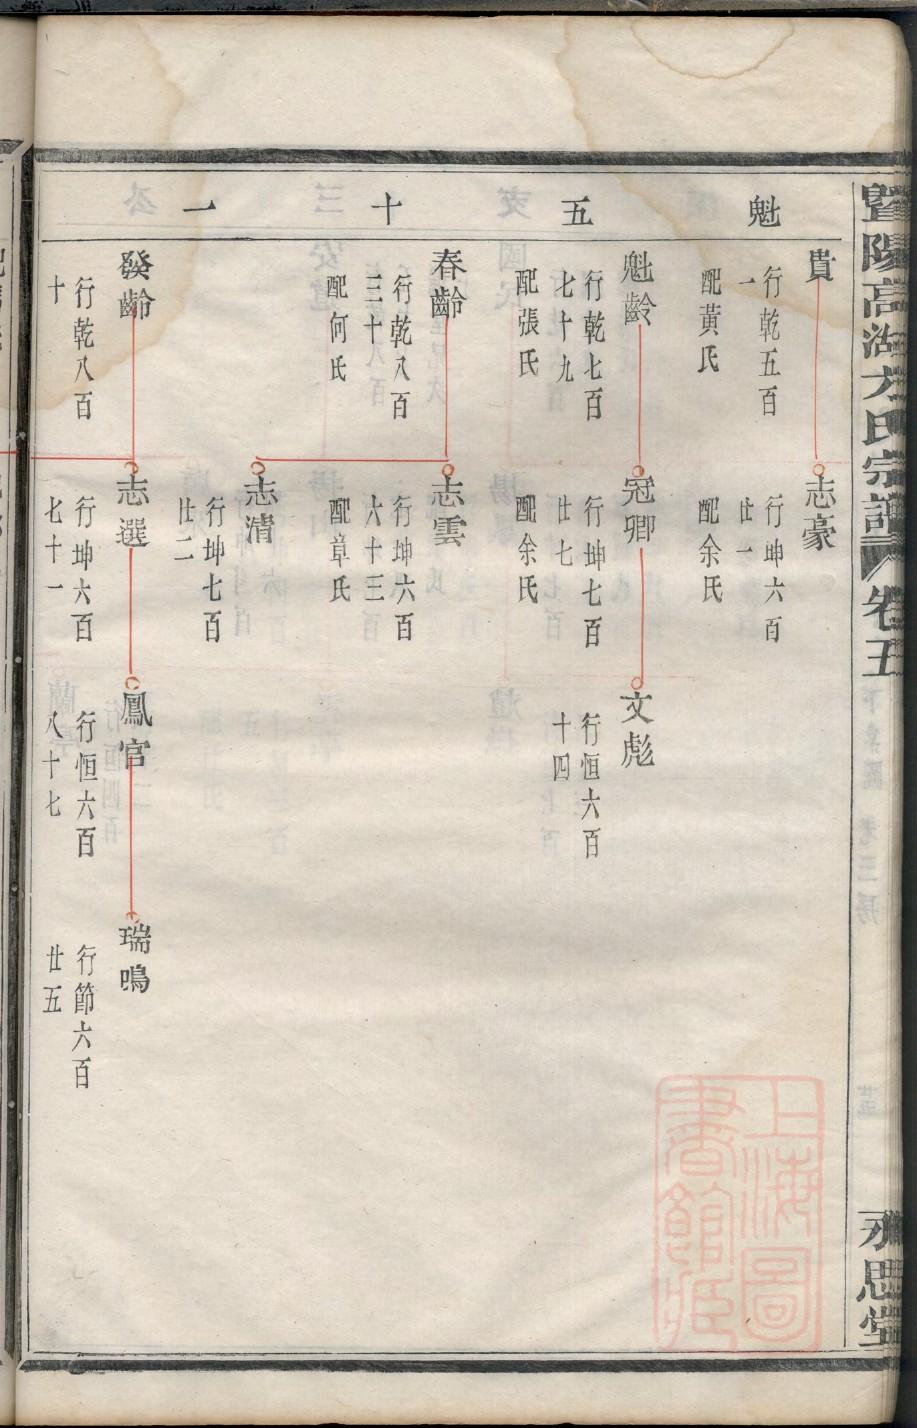 暨陽高湖方氏宗譜
卷五
永思堂
魁 五 十 一
貴
行乾五百
一
配黃氏
志豪
行坤六百
廿一
配余氏
魁齡
行乾七百
七十九
配張氏
冠卿
行坤七百
廿七
配余氏
文彪
行恒六百
十四
春齡
行乾八百
三十
配何氏
志雲
行坤六百
六十三
配章氏
志清
行坤七百
廿二
發齡
行乾八百
十
志選
行坤六百
七十一
鳳官
行恒六百
八十七
瑞鳴
行節六百
廿五
上海圖
書館藏